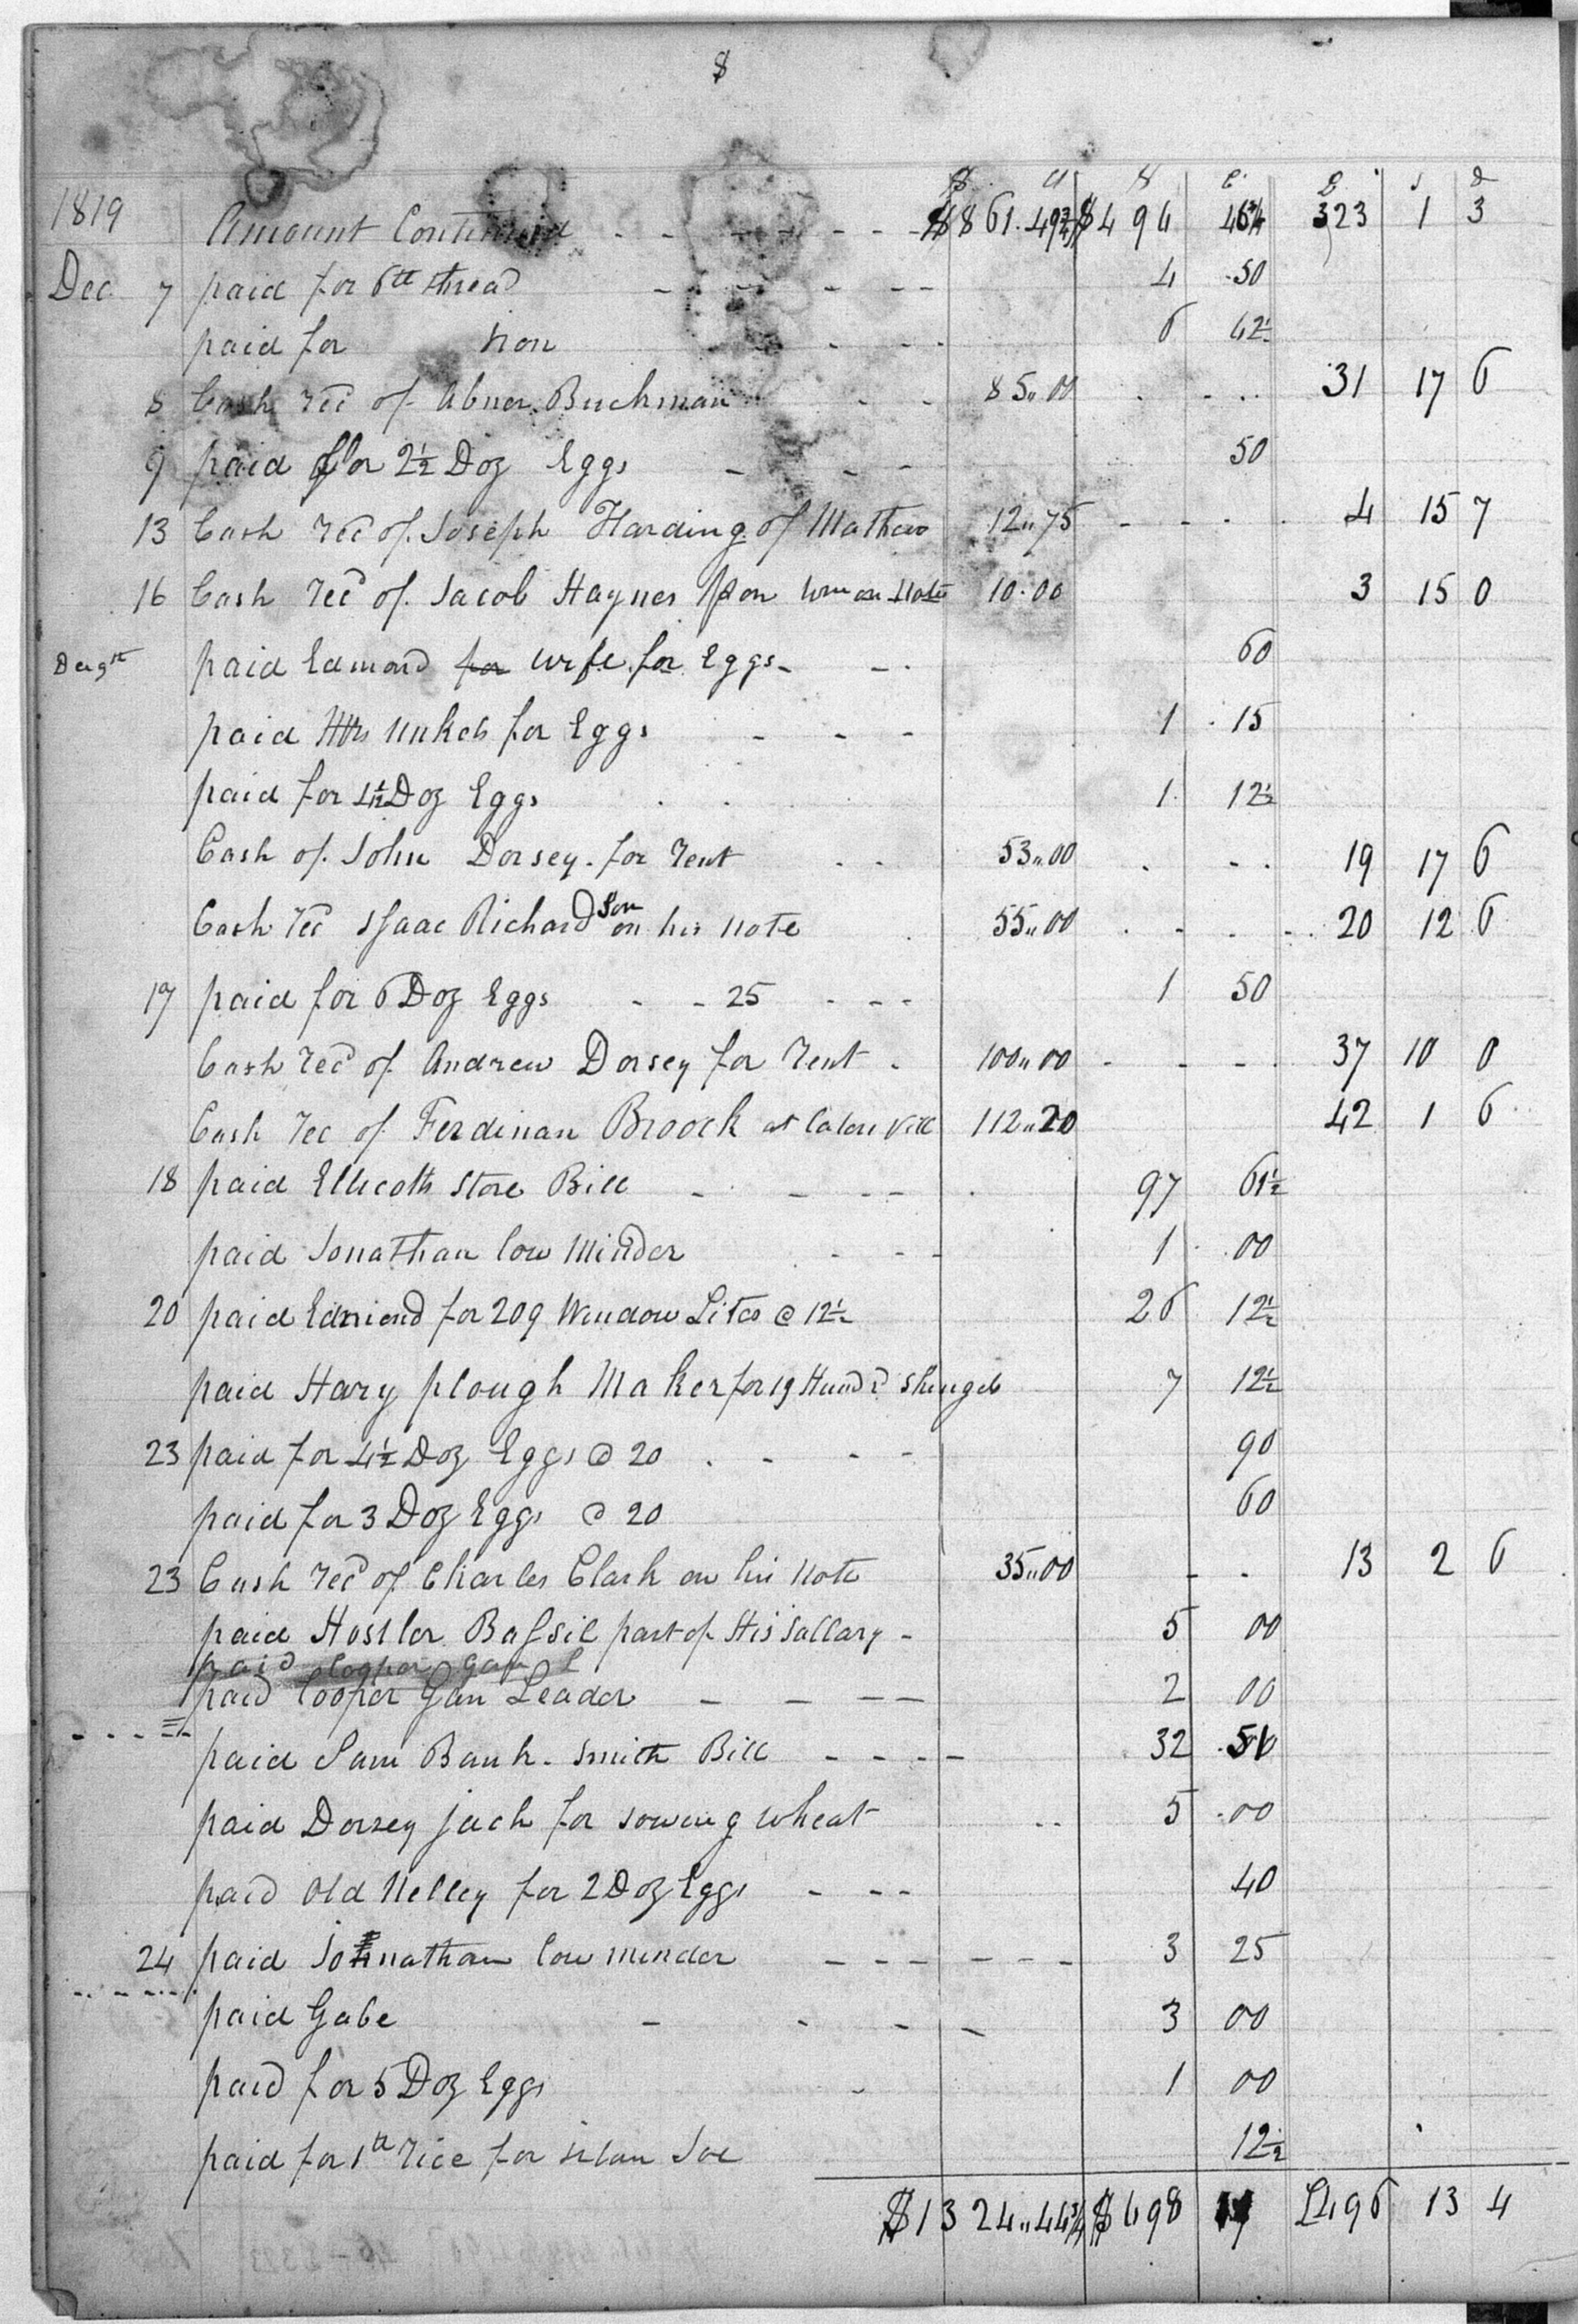 8
$ Ct $ C £ s d
1819 Amount Continued $861.49¾ $496 46¾ 323 1 3
Dec 7 paid for 6 tt thread 4 50
paid for Iron 6 42½
8 Cash recd of Abner Buckman 85"00 31 17 6
9 paid for 2½ Doz Eggs 50
13 Cash recd of Joseph Harding of Mathew 12"75 4 15 7
16 Cash recd of Jacob Haynes on note 10.00 3 15 0
paid Edmond for wife for Eggs 60
paid Mrs for Eggs 1 15
paid for 4½ Doz Eggs 1 12½
Cash of John Dorsey for rent 53"00 19 17 6
Cash rec Isaac Richardson on his note 55"00 20 12 6
17 paid for 6 Doz Eggs 25 1 50
Cash recd of Andrew Dorsey for rent 100"00 37 10 0
Cash rec of Ferdinan Broock at 112"20 42 1 6
18 paid Ellicotts Store Bill 97 61½
paid Jonathan Cow Minder 1 00
20 paid Edmond for 209 Window Lites @ 12½ 26 12½
paid Hary plough Maker for 19 Hundd Shingels 7 12½
23 paid for 4½ Doz Eggs @ 20 90
paid for 3 Doz Eggs @ 20 60
23 Cash recd of Charles Clark on his note 35"00 13 2 6
paid Hostler Bassil part of His Sallary 5 00
paid Cooper Gan L
paid Cooper Gan Leader 2 00
paid Sam Bank Smith Bill 32 51
paid Dorsey jack for sowing wheat 5 00
paid Old Nelley for 2 Doz Eggs 40
24 paid Johnathan Cow minder 3 25
paid Gabe 3 00
paid for 5 Doz Eggs 1 00
paid for 1 tt rice for Joe 12½
$1324"44¾ $698 £496 13 4